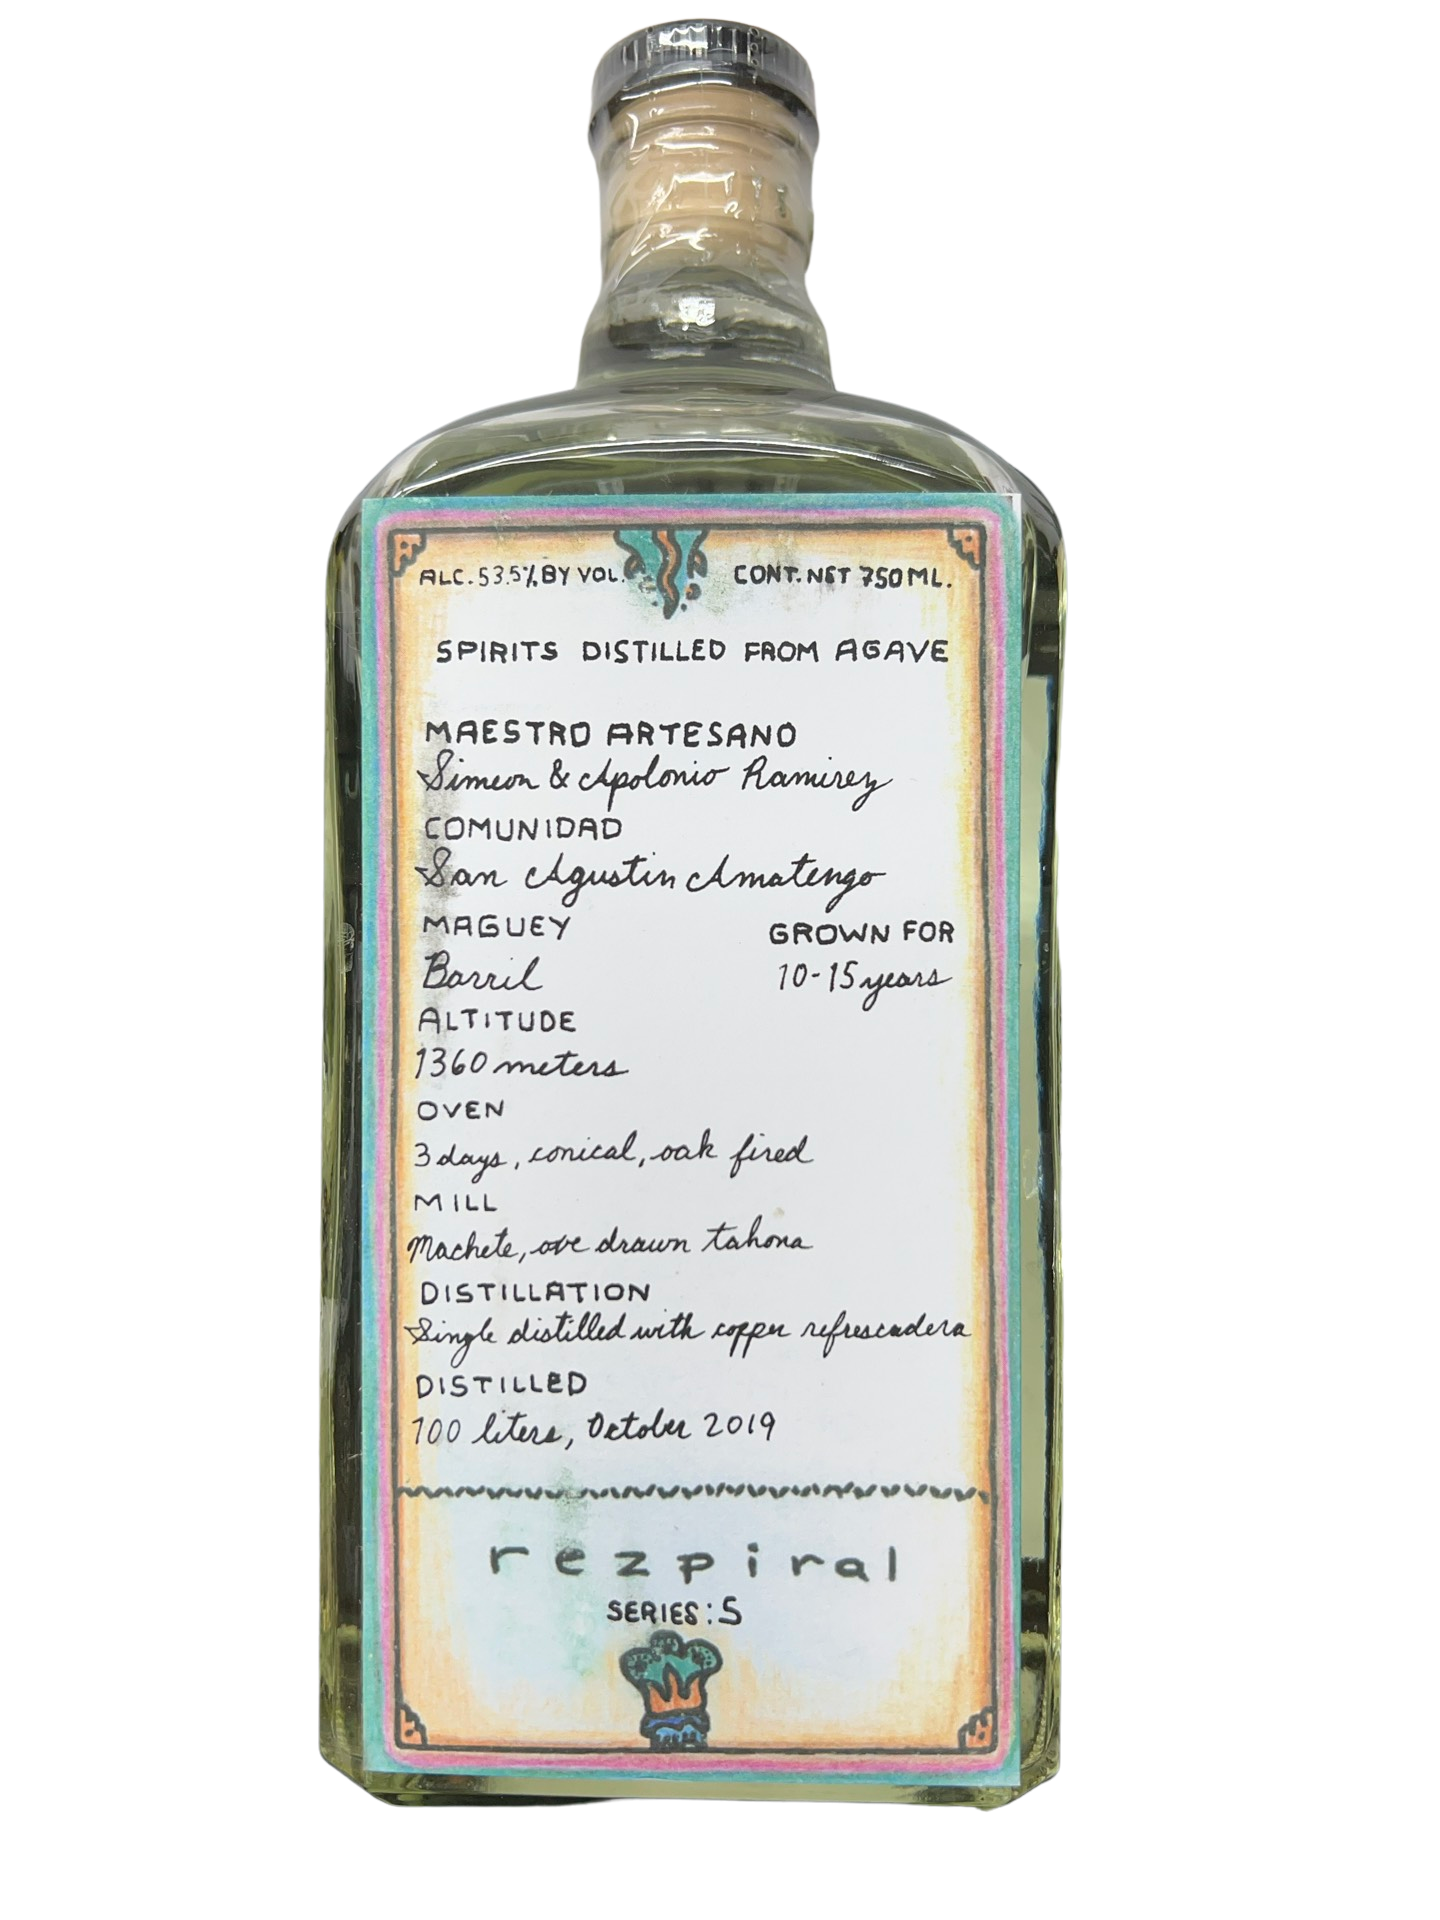 ALC. 53.5% BY VOL.
CONT. NET 750 ML.
SPIRITS DISTILLED FROM AGAVE
MAESTRO ARTESANO
Simeon & Apolonio Ramirez
COMUNIDAD
San Agustin Amatengo
MAGUEY
Barril
GROWN FOR
10-15 years
ALTITUDE
1360 meters
OVEN
3 days, conical, oak fired
MILL
Machete, oxe drawn tahona
DISTILLATION
Single distilled with copper refrescadera
DISTILLED
700 liters, October 2019
rezpiral
SERIES: S